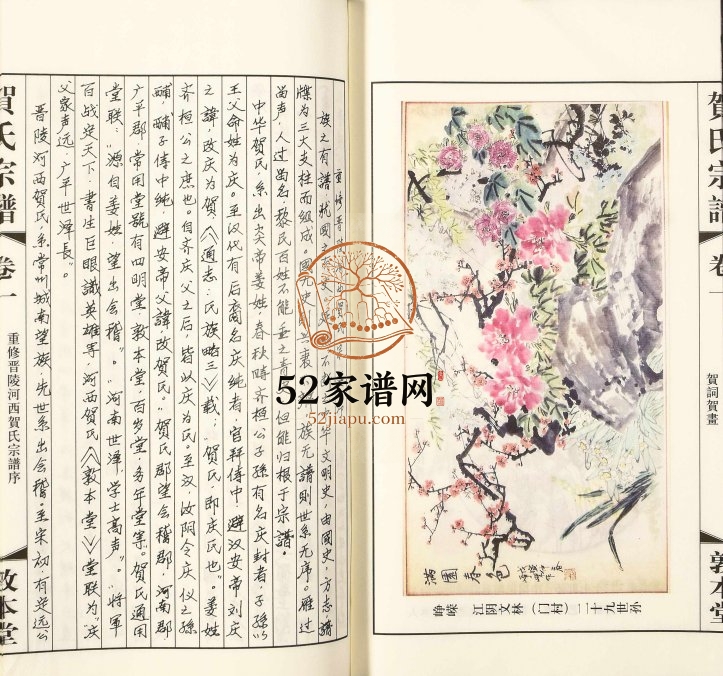 賀氏宗譜
卷一
賀詞賀畫
敦本堂
满園春色
二十九世孙
江阴文林（门村）
峥嵘
族之有譜，犹國之有史
华文明史，由國史，方志，譜
牒为三大支柱而组成。國无史
族无譜則世系无序。雁过
留声，人过留名，黎民百姓不能垂之青史，但能归根于宗譜。
中华賀氏，系出炎帝姜姓，春秋時齐桓公子孫有名庆封者，子孫以
王父命姓为庆。至汉代有后裔名庆純者，官拜侍中，避汉安帝刘庆
之諱，改庆为賀，《通志·氏族略三》載，"賀氏即庆氏也"。姜姓
齐桓公之庶也。自齐庆父之后，皆以庆为氏。至汉，汝阴令庆仪之孫
酺，酺子侍中純，避安帝父諱改賀氏。"賀氏郡望会稽郡，河南郡
广平郡，常用堂號有四明堂，敦本堂，百岁堂，务年堂等。賀氏通用
堂联："源自姜姓，望出会稽"。"河南世泽，学士高声"。"将軍
百战安天下，書生巨眼識英雄等。河西賀氏《敦本堂》堂联为"庆
父家声远，广平世泽長"。
晋陵河西賀氏，系常州城南望族，先世系出会稽。至宋初有安远公
賀氏宗譜
卷一
重修晋陵河西賀氏宗譜序
敦本堂
52家谱网
52jiapu.com